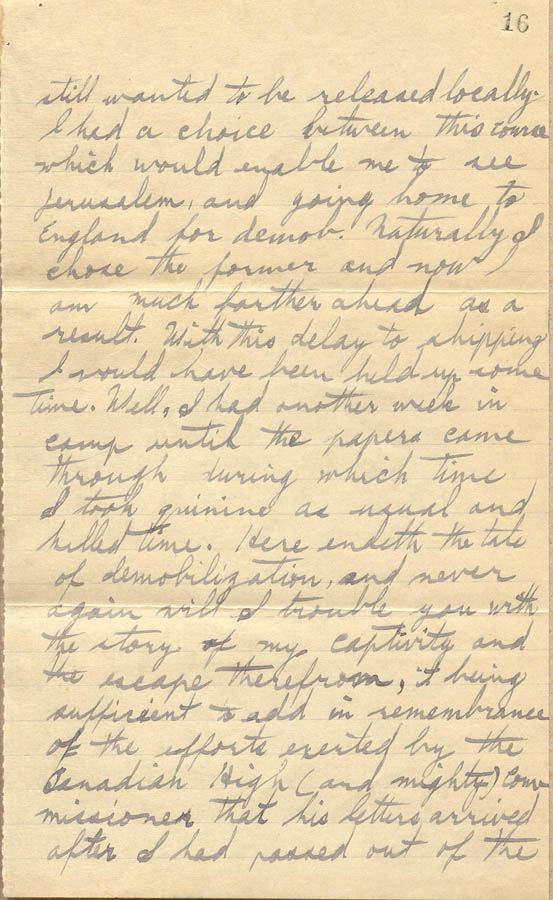 16
still wanted to be released locally.
I had a choice between this course
which would enable me to see
Jerusalem, and going home to
England for demob. Naturally I
chose the former and now I
am much farther ahead as a
result. With this delay to shipping
I would have been held up some
time. Well, I had another week in
camp until the papers came
through during which time
I took quinine as usual and
killed time. Here endeth the tale
of demobilization, and never
again will I trouble you with
the story of my captivity and
the escape therefrom, it being
sufficient to add in remembrance
of the efforts exerted by the
Canadian High (and mighty) Com-
missioner that his letters arrived
after I had passed out of the